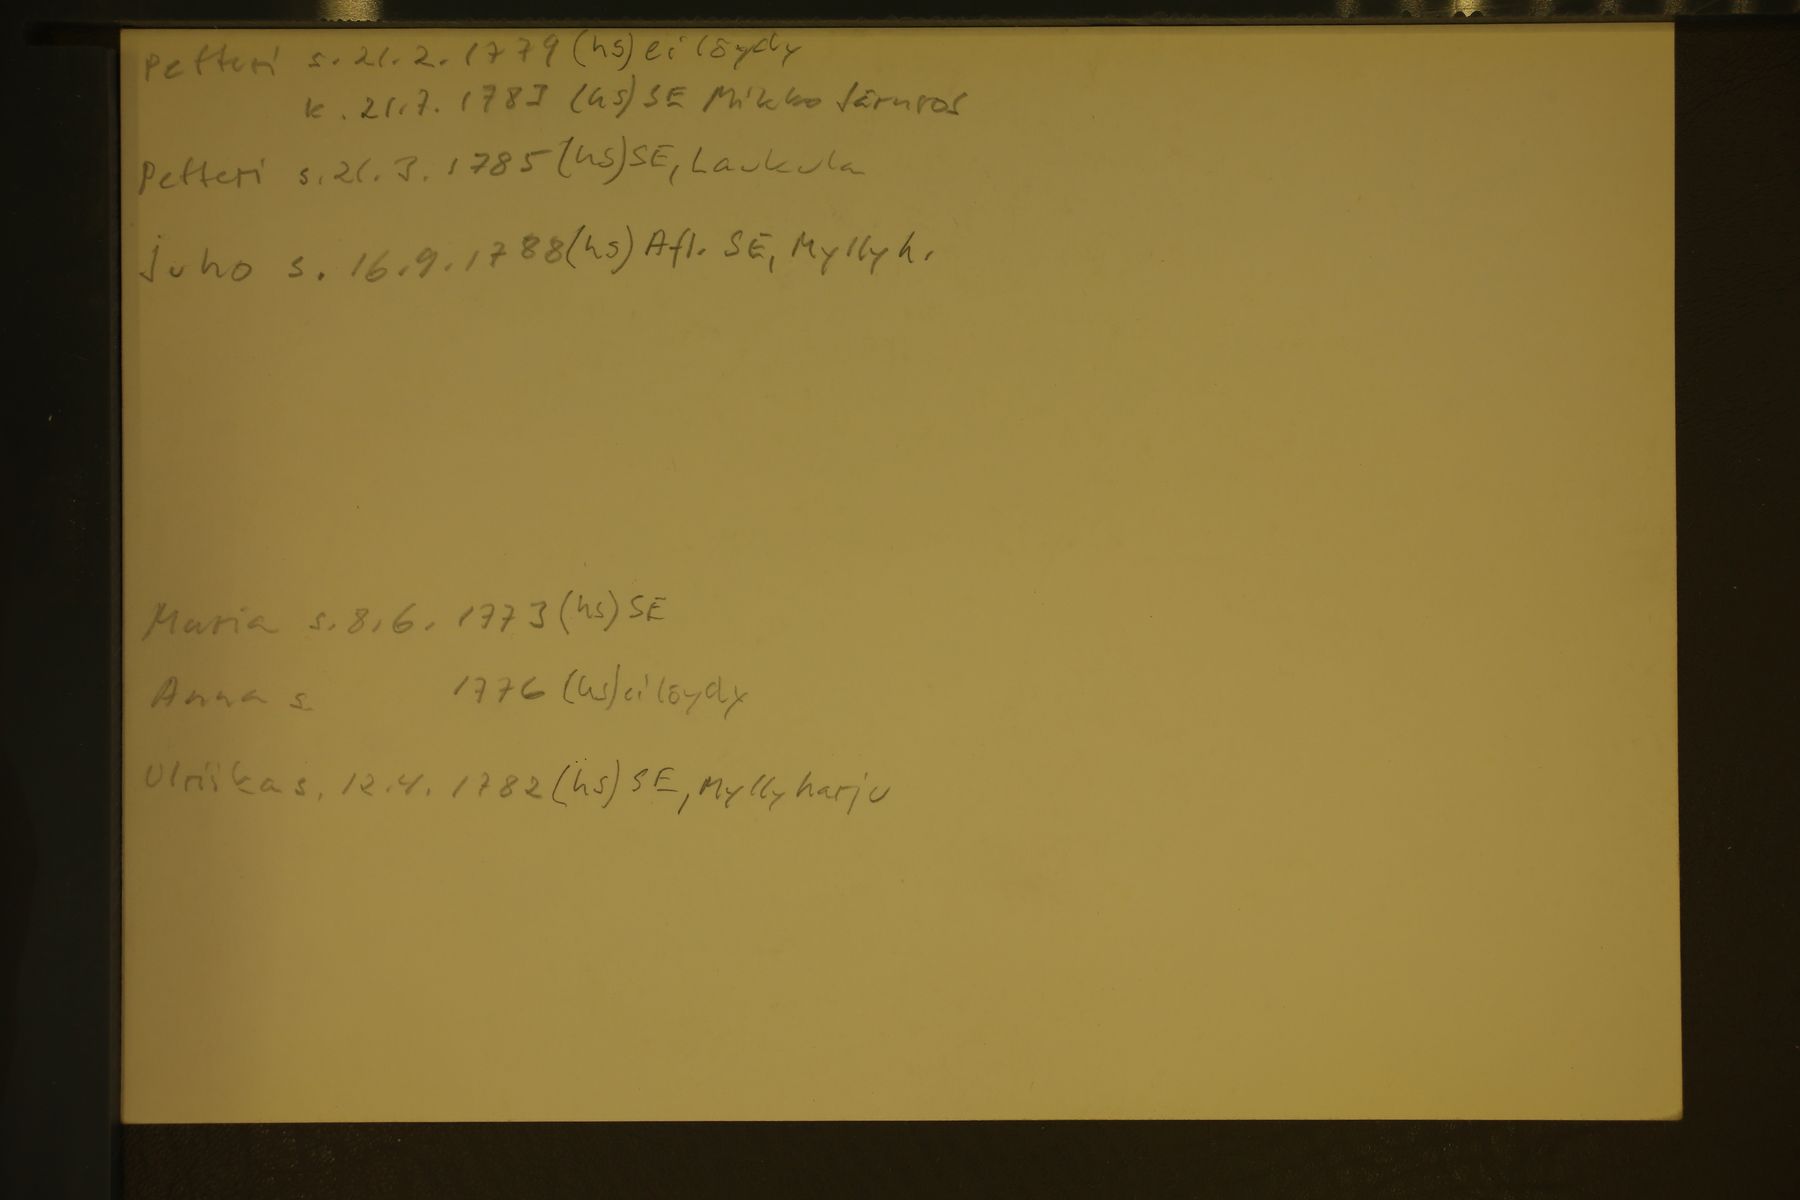 Petteri s. 21.2. 1779 (hs) ei löydy
k. 21.7. 1783 (hs) SE Mikko
Petteri s. 21. 3. 1785 (hs) SE, Laukula
Juho s. 16.9.1788 (hs) Afl. SE, Myllyh.
Maria s. 8.6. 1773 (hs) SE
Anna s. 1776 (hs) ei löydy
Ulriika s. 12.4. 1782 (hs) SE, Myllyharju